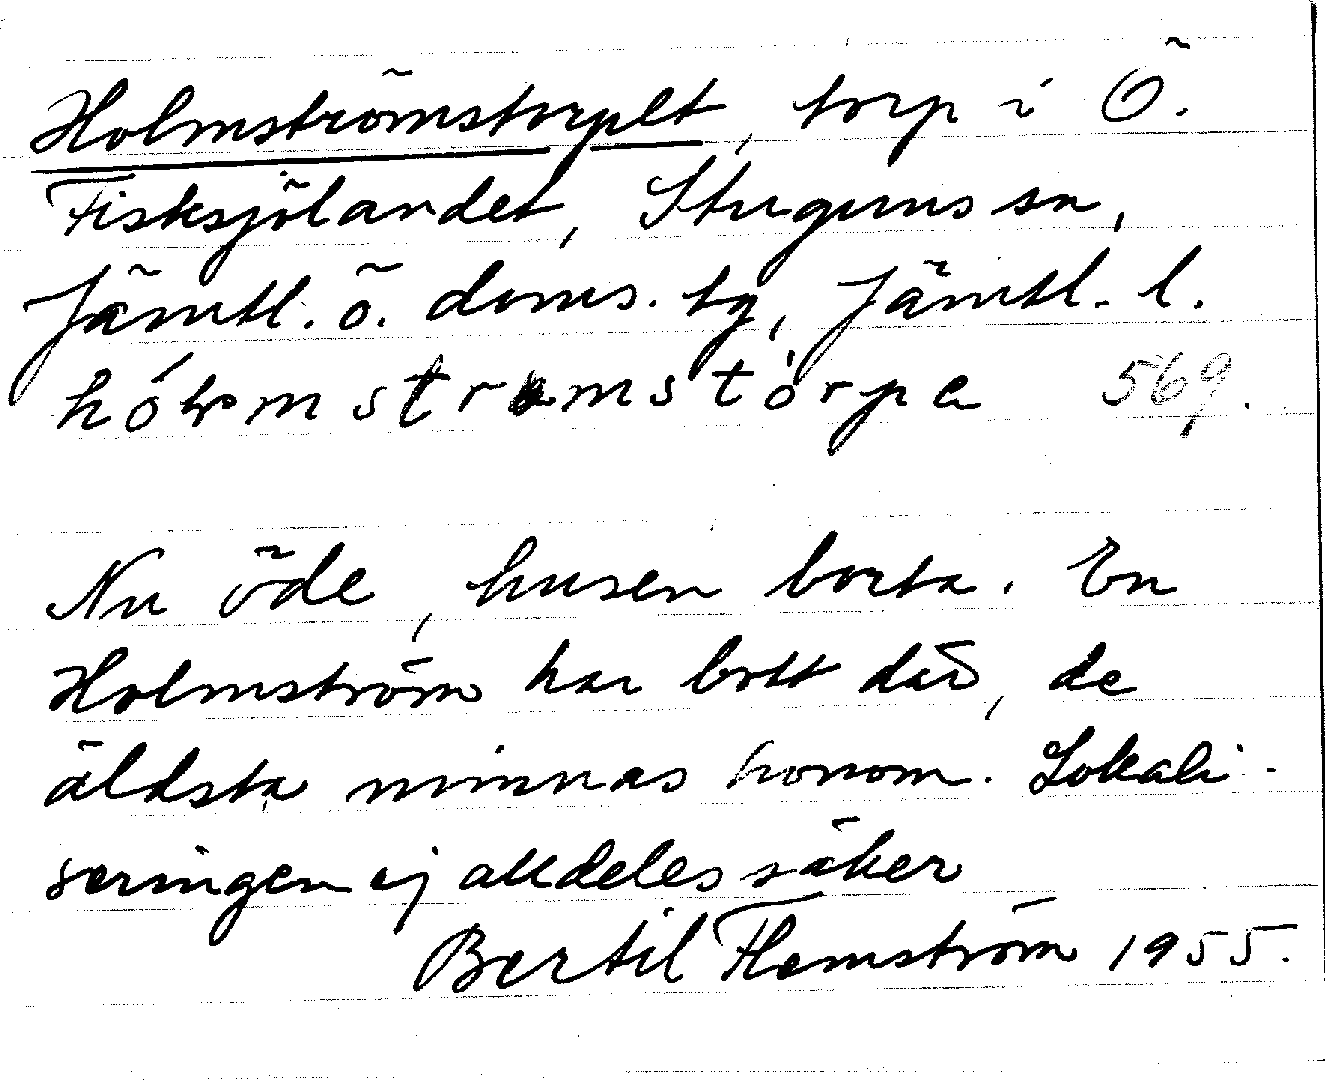 Holmströmstorpet, torp i Ö.
Fisksjölandet, Stuguns sn,
Jämtl. ö. doms. tg, Jämtl. l.
hólmstromstòrpe 569.
Nu öde, husen borta. En
Holmström har bott där, de
äldsta minnas honom. Lokali-
seringen ej alldeles säker
Bertil Flemström 1955.